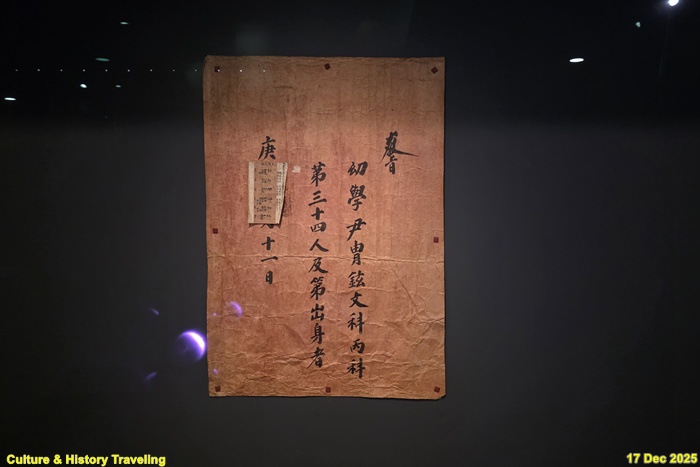 敎旨
幼學尹胄鉉文科丙科
第三十四人及第出身者
庚
月十一日
Culture & History Traveling
17 Dec 2025